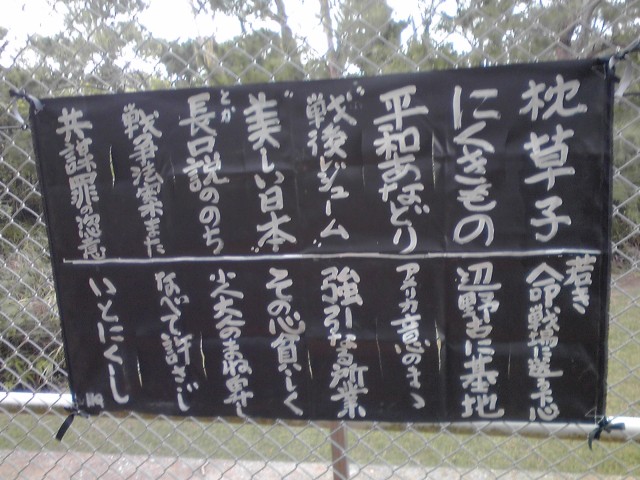 枕草子
にくきもの
平和あなどり
"戦後レジューム"
"美しい日本"
とか
長口説ののち
戦争法案また
共謀罪の
若き
命戦場に送る下心
辺野古に基地
アメリカ意のまゝ
強引なる所業
その心貧しく
のまね事し
なべて許さじ
いとにくし